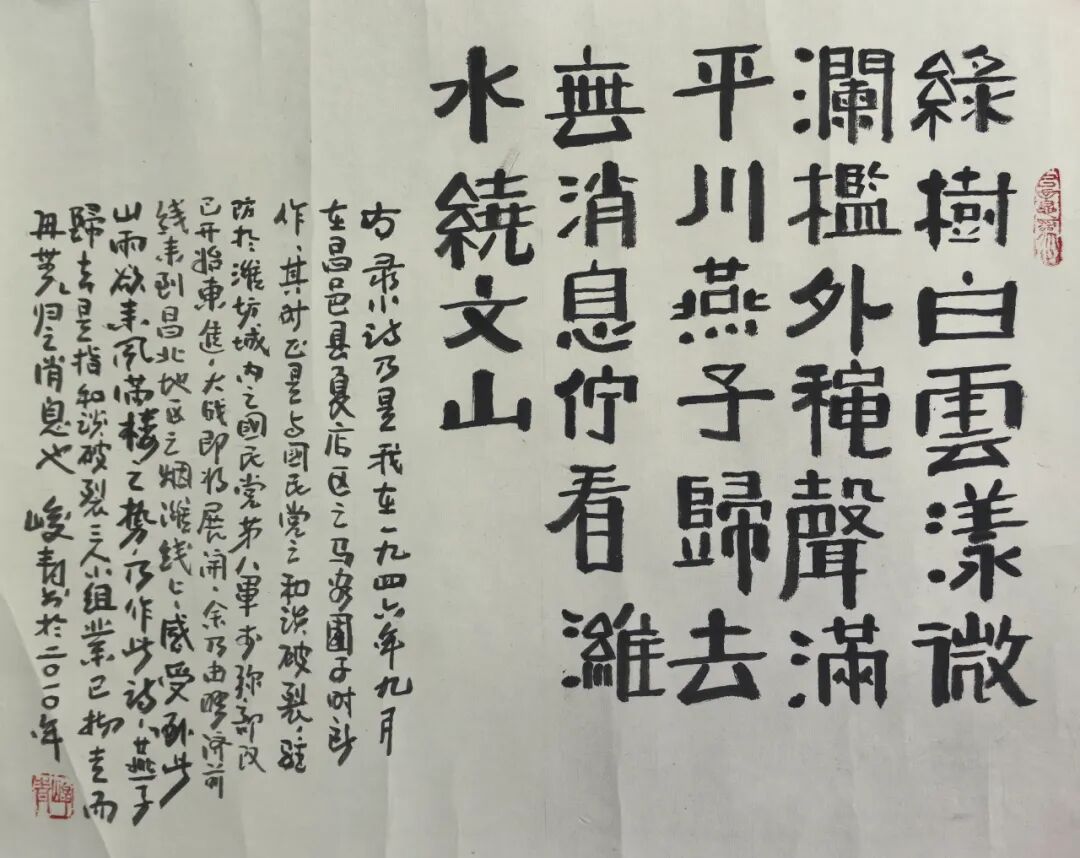 綠樹白雲漾微
瀾檻外穐聲滿
平川燕子歸去
無消息佇看濰
水繞文山
右录小诗乃是我在一九四六年九月
在昌邑县夏店区之马家围子时所
作、其时正是与國民党之和谈破裂、驻
防於潍坊城内之國民党第八軍李弥部改
已开始東進、大战即将展開、余乃由胶济前
线来到昌北地区之烟潍线上、感受到此
山雨欲来風满楼之势、乃作此诗、燕子
歸去是指和谈破裂三人小组業已撤走而
再無归之消息也 峻青书於二〇一〇年